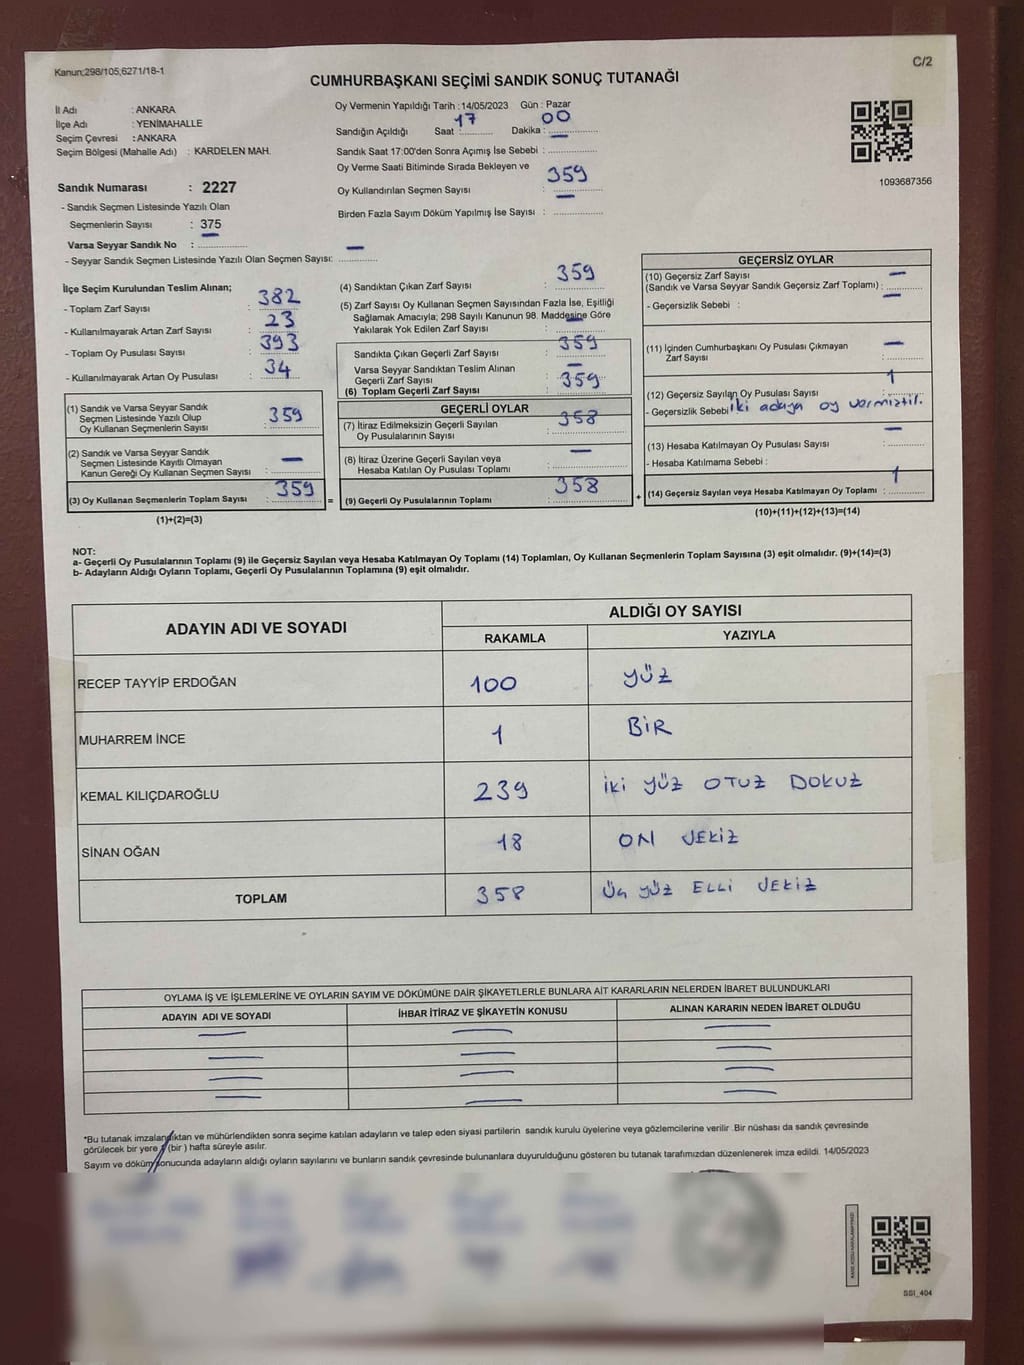 Kanun;298/105;6271/18-1
C/2
CUMHURBAŞKANI SEÇİMİ SANDIK SONUÇ TUTANAĞI
İl Adı : ANKARA
İlçe Adı : YENİMAHALLE
Seçim Çevresi : ANKARA
Seçim Bölgesi (Mahalle Adı) : KARDELEN MAH.
Oy Vermenin Yapıldığı Tarih : 14/05/2023 Gün : Pazar
Sandığın Açıldığı Saat : 17 Dakika : 00
Sandık Saat 17:00'den Sonra Açımış İse Sebebi : —
Oy Verme Saati Bitiminde Sırada Bekleyen ve
Oy Kullandırılan Seçmen Sayısı : 359
Birden Fazla Sayım Döküm Yapılmış İse Sayısı : —
1093687356
Sandık Numarası : 2227
- Sandık Seçmen Listesinde Yazılı Olan
Seçmenlerin Sayısı : 375
Varsa Seyyar Sandık No : —
- Seyyar Sandık Seçmen Listesinde Yazılı Olan Seçmen Sayısı: —
İlçe Seçim Kurulundan Teslim Alınan;
- Toplam Zarf Sayısı : 382
- Kullanılmayarak Artan Zarf Sayısı : 23
- Toplam Oy Pusulası Sayısı : 393
- Kullanılmayarak Artan Oy Pusulası : 34
(1) Sandık ve Varsa Seyyar Sandık
Seçmen Listesinde Yazılı Olup
Oy Kullanan Seçmenlerin Sayısı : 359
(2) Sandık ve Varsa Seyyar Sandık
Seçmen Listesinde Kayıtlı Olmayan
Kanun Gereği Oy Kullanan Seçmen Sayısı : —
(3) Oy Kullanan Seçmenlerin Toplam Sayısı : 359 =
(1)+(2)=(3)
(4) Sandıktan Çıkan Zarf Sayısı : 359
(5) Zarf Sayısı Oy Kullanan Seçmen Sayısından Fazla İse, Eşitliği
Sağlamak Amacıyla; 298 Sayılı Kanunun 98. Maddesine Göre
Yakılarak Yok Edilen Zarf Sayısı : —
Sandıkta Çıkan Geçerli Zarf Sayısı : 359
Varsa Seyyar Sandıktan Teslim Alınan
Geçerli Zarf Sayısı : —
(6) Toplam Geçerli Zarf Sayısı : 359
GEÇERLİ OYLAR
(7) İtiraz Edilmeksizin Geçerli Sayılan
Oy Pusulalarının Sayısı : 358
(8) İtiraz Üzerine Geçerli Sayılan veya
Hesaba Katılan Oy Pusulası Toplamı : —
(9) Geçerli Oy Pusulalarının Toplamı : 358 +
GEÇERSİZ OYLAR
(10) Geçersiz Zarf Sayısı
(Sandık ve Varsa Seyyar Sandık Geçersiz Zarf Toplamı) : —
- Geçersizlik Sebebi : —
(11) İçinden Cumhurbaşkanı Oy Pusulası Çıkmayan
Zarf Sayısı : —
(12) Geçersiz Sayılan Oy Pusulası Sayısı : 1
- Geçersizlik Sebebi iki adaya oy vermiştil.
(13) Hesaba Katılmayan Oy Pusulası Sayısı : —
- Hesaba Katılmama Sebebi :
(14) Geçersiz Sayılan veya Hesaba Katılmayan Oy Toplamı : 1
(10)+(11)+(12)+(13)=(14)
NOT:
a- Geçerli Oy Pusulalarının Toplamı (9) ile Geçersiz Sayılan veya Hesaba Katılmayan Oy Toplamı (14) Toplamları, Oy Kullanan Seçmenlerin Toplam Sayısına (3) eşit olmalıdır. (9)+(14)=(3)
b- Adayların Aldığı Oyların Toplamı, Geçerli Oy Pusulalarının Toplamına (9) eşit olmalıdır.
ADAYIN ADI VE SOYADI
ALDIĞI OY SAYISI
RAKAMLA YAZIYLA
RECEP TAYYİP ERDOĞAN 100 YÜZ
MUHARREM İNCE 1 BİR
KEMAL KILIÇDAROĞLU 239 İKİ YÜZ OTUZ DOKUZ
SİNAN OĞAN 18 ON SEKİZ
TOPLAM 358 ÜÇ YÜZ ELLİ SEKİZ
OYLAMA İŞ VE İŞLEMLERİNE VE OYLARIN SAYIM VE DÖKÜMÜNE DAİR ŞİKAYETLERLE BUNLARA AİT KARARLARIN NELERDEN İBARET BULUNDUKLARI
ADAYIN ADI VE SOYADI İHBAR İTİRAZ VE ŞİKAYETİN KONUSU ALINAN KARARIN NEDEN İBARET OLDUĞU
*Bu tutanak imzalandıktan ve mühürlendikten sonra seçime katılan adayların ve talep eden siyasi partilerin sandık kurulu üyelerine veya gözlemcilerine verilir .Bir nüshası da sandık çevresinde
görülecek bir yere 1 (bir ) hafta süreyle asılır.
Sayım ve döküm sonucunda adayların aldığı oyların sayılarını ve bunların sandık çevresinde bulunanlara duyurulduğunu gösteren bu tutanak tarafımızdan düzenlenerek imza edildi. 14/05/2023
SSI_404